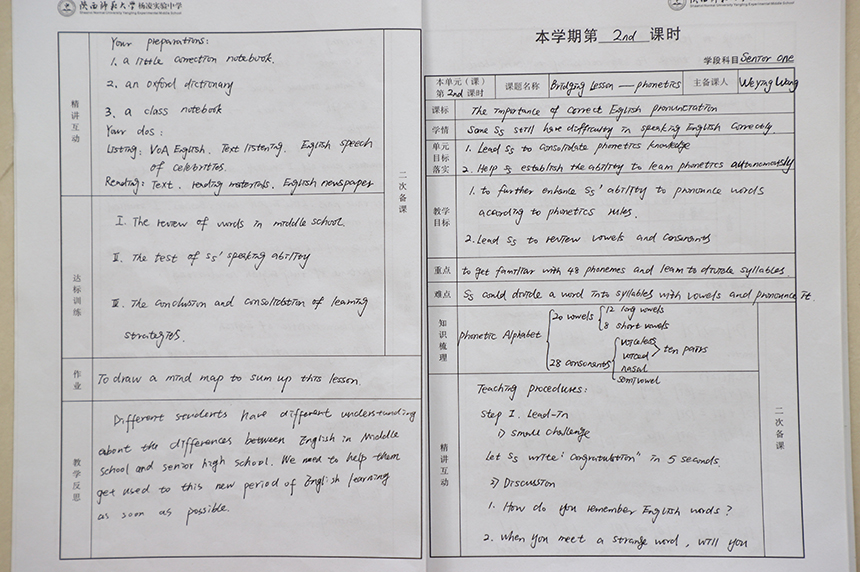 陕西师范大学 杨凌实验中学
Shaanxi Normal University Yangling Experimental Middle School
精讲互动
Your preparations:
1. a little correction notebook.
2. an oxford dictionary
3. a class notebook
Your dos:
Listing: VOA English. Text listening. English speech
of celebrities.
Reading: Text. reading materials. English newspaper
二次备课
达标训练
I. The review of words in middle school.
II. The test of Ss' speaking ability
III. The conclusion and consolidation of learning
strategies.
作业
To draw a mind map to sum up this lesson.
教学反思
Different students have different understanding
about the differences between English in Middle
school and senior high school. We need to help them
get used to this new period of English learning
as soon as possible.
陕西师范大学 杨凌实验中学
Shaanxi Normal University Yangling Experimental Middle School
本学期第 2nd 课时
学段科目 Senior One
本单元(课)
第 2nd 课时
课题名称
Bridging Lesson — phonetics
主备课人
Weying Wang
课标
The importance of correct English pronunciation
学情
Some Ss still have difficulty in speaking English correctly.
单元目标落实
1. Lead Ss to consolidate phonetics knowledge
2. Help Ss establish the ability to learn phonetics autonomously
教学目标
1. to further enhance Ss' ability to pronounce words
according to phonetics rules.
2. Lead Ss to review vowels and consonants
重点
to get familiar with 48 phonemes and learn to divide syllables.
难点
Ss could divide a word into syllables with vowels and pronounce it.
知识梳理
phonetic Alphabet
20 vowels
12 long vowels
8 short vowels
28 consonants
voiceless
voiced
ten pairs
nasal
semivowel
精讲互动
Teaching procedures:
Step I. Lead-in
1) small challenge
Let Ss write "congratulation" in 5 seconds.
2) Discussion
1. How do you remember English words?
2. When you meet a strange word, will you
二次备课